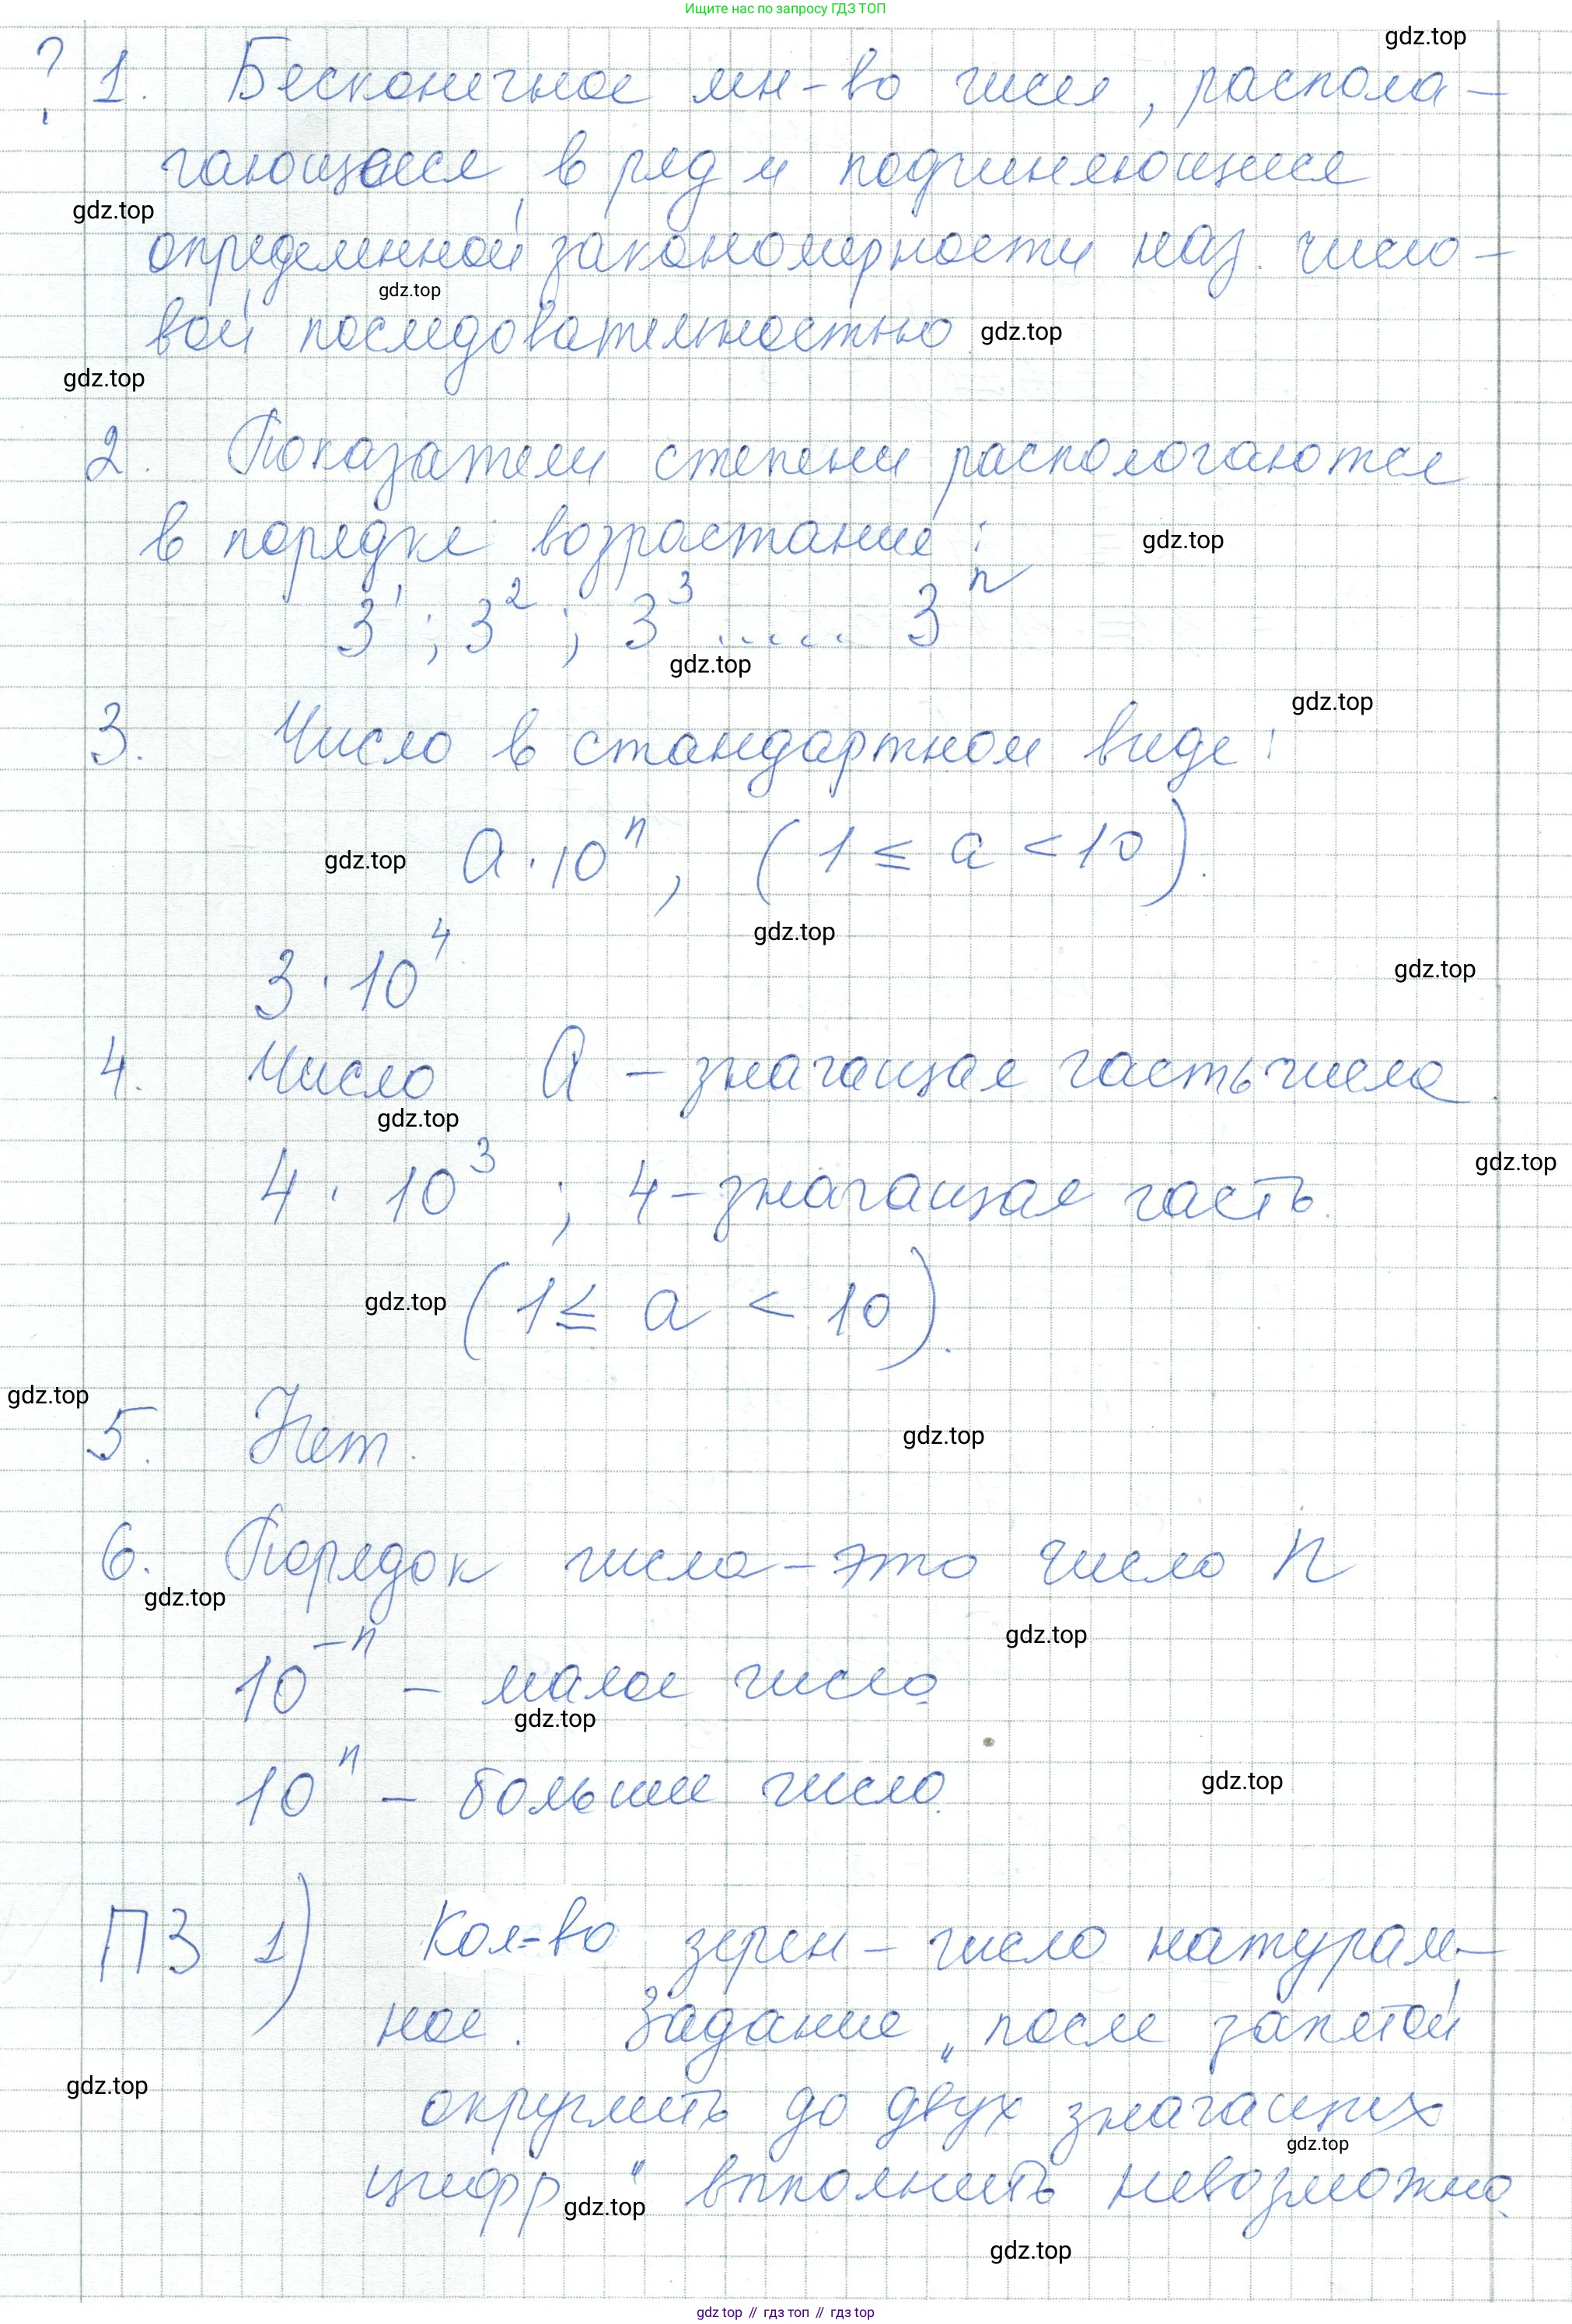 Ищите нас по запросу ГДЗ ТОП
gdz.top
? 1. Бесконечное мн-во чисел, распола-
гающееся в ряд и подчиняющиеся
gdz.top
определенной закономерности наз. число-
gdz.top
вой последовательностью.
gdz.top
gdz.top
2. Показатели степени распологаются
в порядке возрастание:
gdz.top
3¹; 3²; 3³ ...... 3ⁿ
gdz.top
gdz.top
3. Число в стандартном виде:
gdz.top
a·10ⁿ, (1 ≤ a < 10).
gdz.top
gdz.top
3·10⁴
4. Число a – значащая часть числа.
gdz.top
gdz.top
4·10³; 4 – значащая часть.
gdz.top
(1 ≤ a < 10).
gdz.top
gdz.top
5. Нет.
6. Порядок числа – это число n
gdz.top
gdz.top
10⁻ⁿ – малое число
gdz.top
gdz.top
10ⁿ – больше число.
ПЗ 1) Кол-во зерен – число натураль-
ное. Задание „после запятой
gdz.top
округлить до двух значащих
gdz.top
цифр" вполнить невозможно.
gdz.top
gdz.top
gdz top // гдз топ // гдз top